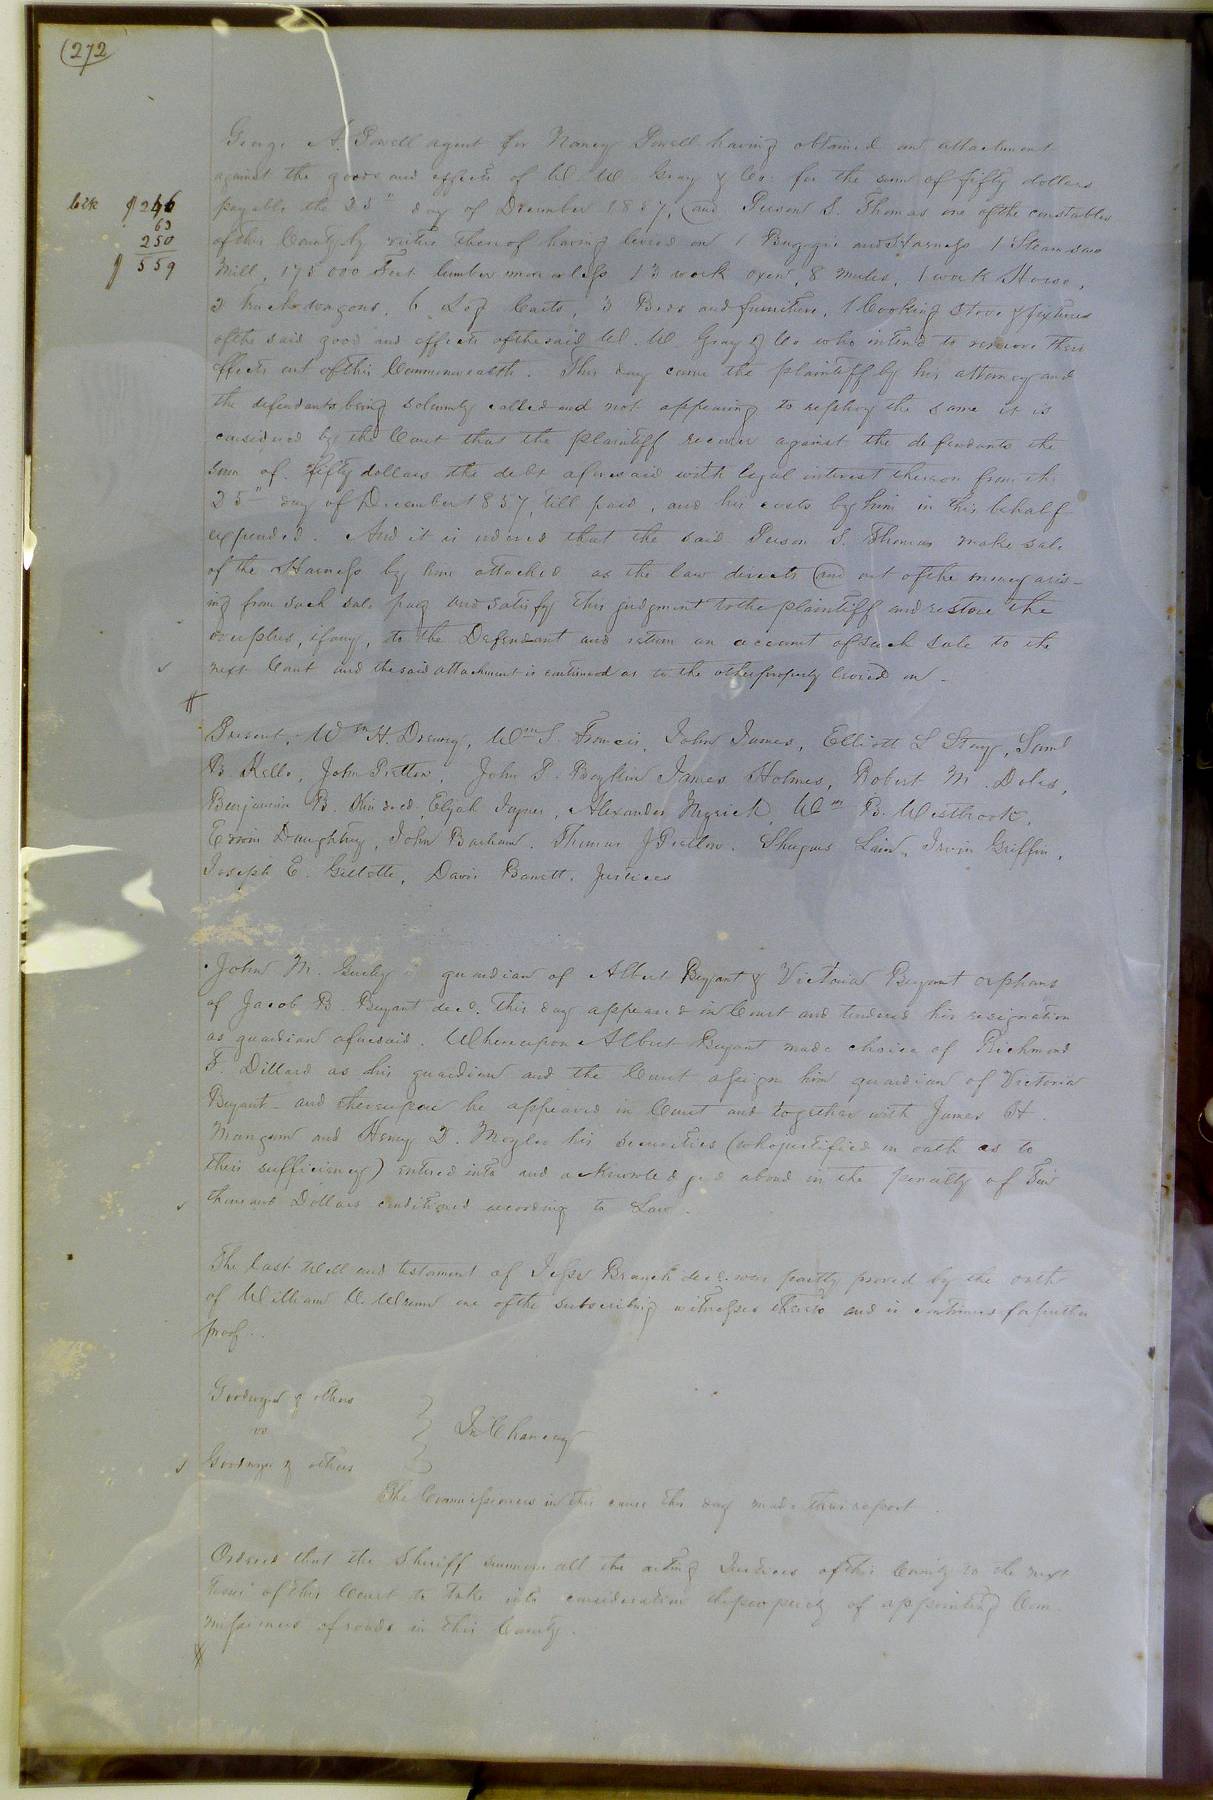 (272
George A. Powell agent for Nancy Powell having obtained an attachment
against the goods and effects of W. W. Gray & Co. for the sum of fifty dollars
payable the 25th day of December 1857, and Person S. Thomas one of the constables
of this County by virtue thereof having levied on 1 Buggie and Harness 1 Steam saw
Mill, 175 000 Feet lumber more or less 13 work oxen, 8 mules, 1 work Horse,
wagons, 6 Log Carts, 3 Beds and furniture, 1 Cooking Stove & fixtures
of the said good and effects of the said W. W. Gray & Co who intend to remove their
effects out of this Commonwealth. This day came the plaintiff by his attorney and
the defendants being solemnly called and not appearing to replevy the same it is
considered by the Court that the plaintiff recover against the defendants the
sum of fifty dollars the debt aforesaid with legal interest thereon from the
25th day of December 1857, till paid, and his costs by him in this behalf
expended. And it is ordered that the said Person S. Thomas make sale
of the Harness by him attached as the law directs and out of the money aris-
ing from such sale pay and satisfy this judgment to the plaintiff and restore the
overplus, if any, to the Defendant and return an account of such sale to the
next Court and the said attachment is continued as to the other property levied on -
clk $ 246
63
250
$ 559
Present, Wm H. Drewry, Wm S. Francis, John James, Elliott L Story, Saml
B. Kello, John Pretlow, John P. Boykin James Holmes, Robert M. Doles,
Benjamin B. Kindred, Elijah Joyner, Alexander Myrick, Wm B. Westbrook,
Erwin Daughtrey, John Barham, Thomas J Pretlow, Lain, Irvin Griffin,
Joseph E. Gillette, Davis Barrett, Justices
John M. Gurley guardian of Albert Bryant & Victoria Bryant orphans
of Jacob B Bryant decd. this day appeared in Court and tendered his resignation
as guardian aforesaid. Whereupon Albert Bryant made choice of Richmond
F. Dillard as his guardian and the Court assign him guardian of Victoria
Bryant - and thereupon he appeared in Court and together with James H.
Mangum and Henry D. Moyler his securities (who justified on oath as to
their sufficiency) entered into and acknowledged a bond in the penalty of
thousand Dollars conditioned according to Law.
The last Will and testament of Jesse Branch decd. was partly proved by the oath
of William one of the subscribing witnesses thereto and is continued for further
proof.
Goodwyn & others
vs
Goodwyn & others
In Chancery
The Commissioners in this cause this day made their report.
Ordered that the Sheriff summon all the acting Justices of this County to the next
Term of this Court to take into consideration the propriety of appointing Com
missioners of roads in this County.